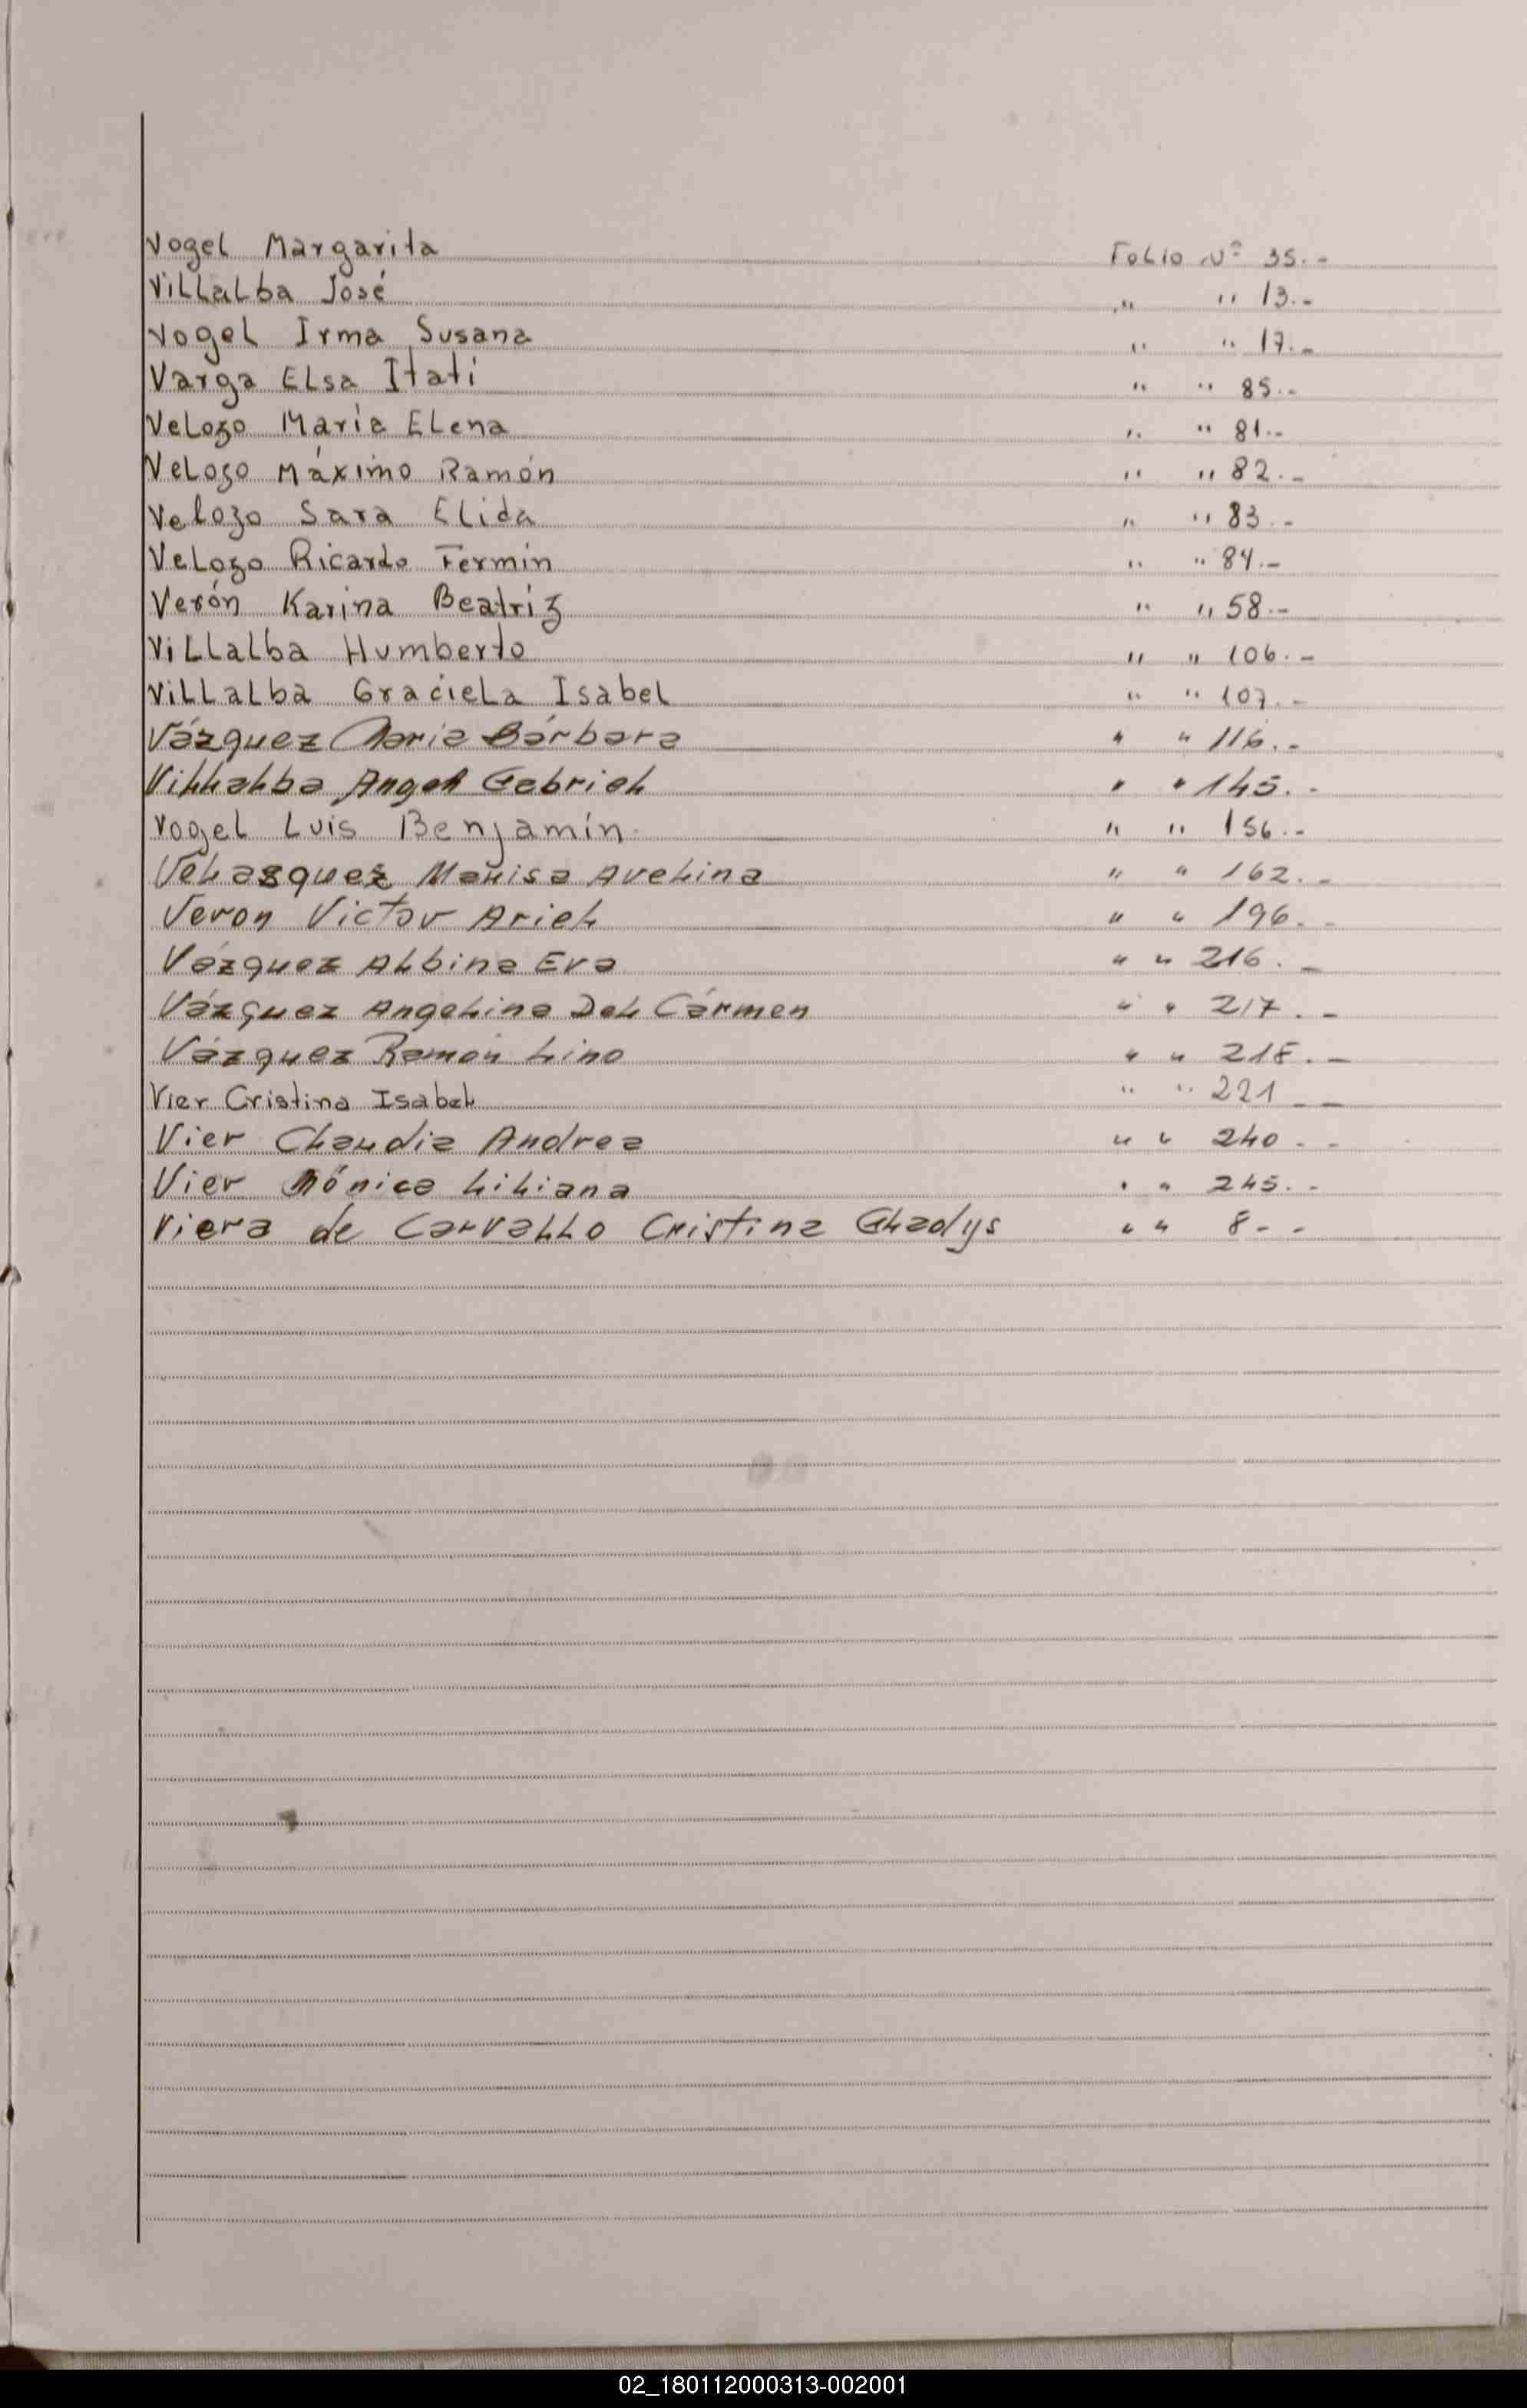 Vogel Margarita Folio Nº 35.-
Villalba José " " 13.-
Vogel Irma Susana " " 17.-
Varga Elsa Itatí " " 85.-
Velozo María Elena " " 81.-
Velozo Máximo Ramón " " 82.-
Velozo Sara Elida " " 83.-
Velozo Ricardo Fermín " " 84.-
Verón Karina Beatriz " " 58.-
Villalba Humberto " " 106.-
Villalba Graciela Isabel " " 107.-
Vázquez María Bárbara " " 116.-
Villalba Angel Gabriel " " 145.-
Vogel Luis Benjamín " " 156.-
Velazquez Marisa Avelina " " 162.-
Veron Victor Ariel " " 196.-
Vázquez Albina Eva " " 216.-
Vázquez Angelina Del Cármen " " 217.-
Vázquez Ramón Lino " " 218.-
Vier Cristina Isabel " " 221 --
Vier Claudia Andrea " " 240 --
Vier Mónica Liliana " " 245.-
Viera de Carvallo Cristina Gladys " " 8--
02_180112000313-002001